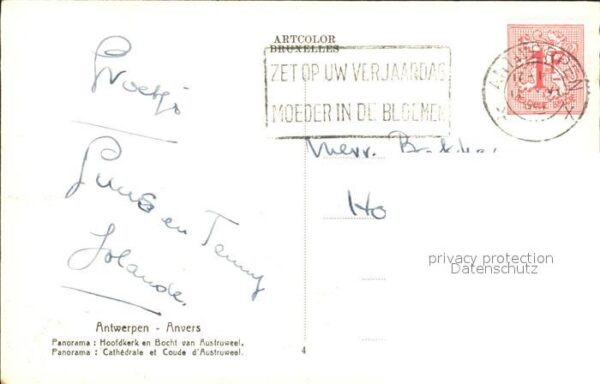 ARTCOLOR
BRUXELLES
ZET OP UW VERJAARDAG
MOEDER IN DE BLOEMEN
ANTWERPEN
1F
Groetjes
en Jenny
Jolande.
Mevr.
Ho
privacy protection
Datenschutz
Antwerpen - Anvers
Panorama : Hoofdkerk en Bocht van Austruweel.
Panorama : Cathédrale et Coude d'Austruweel.
4